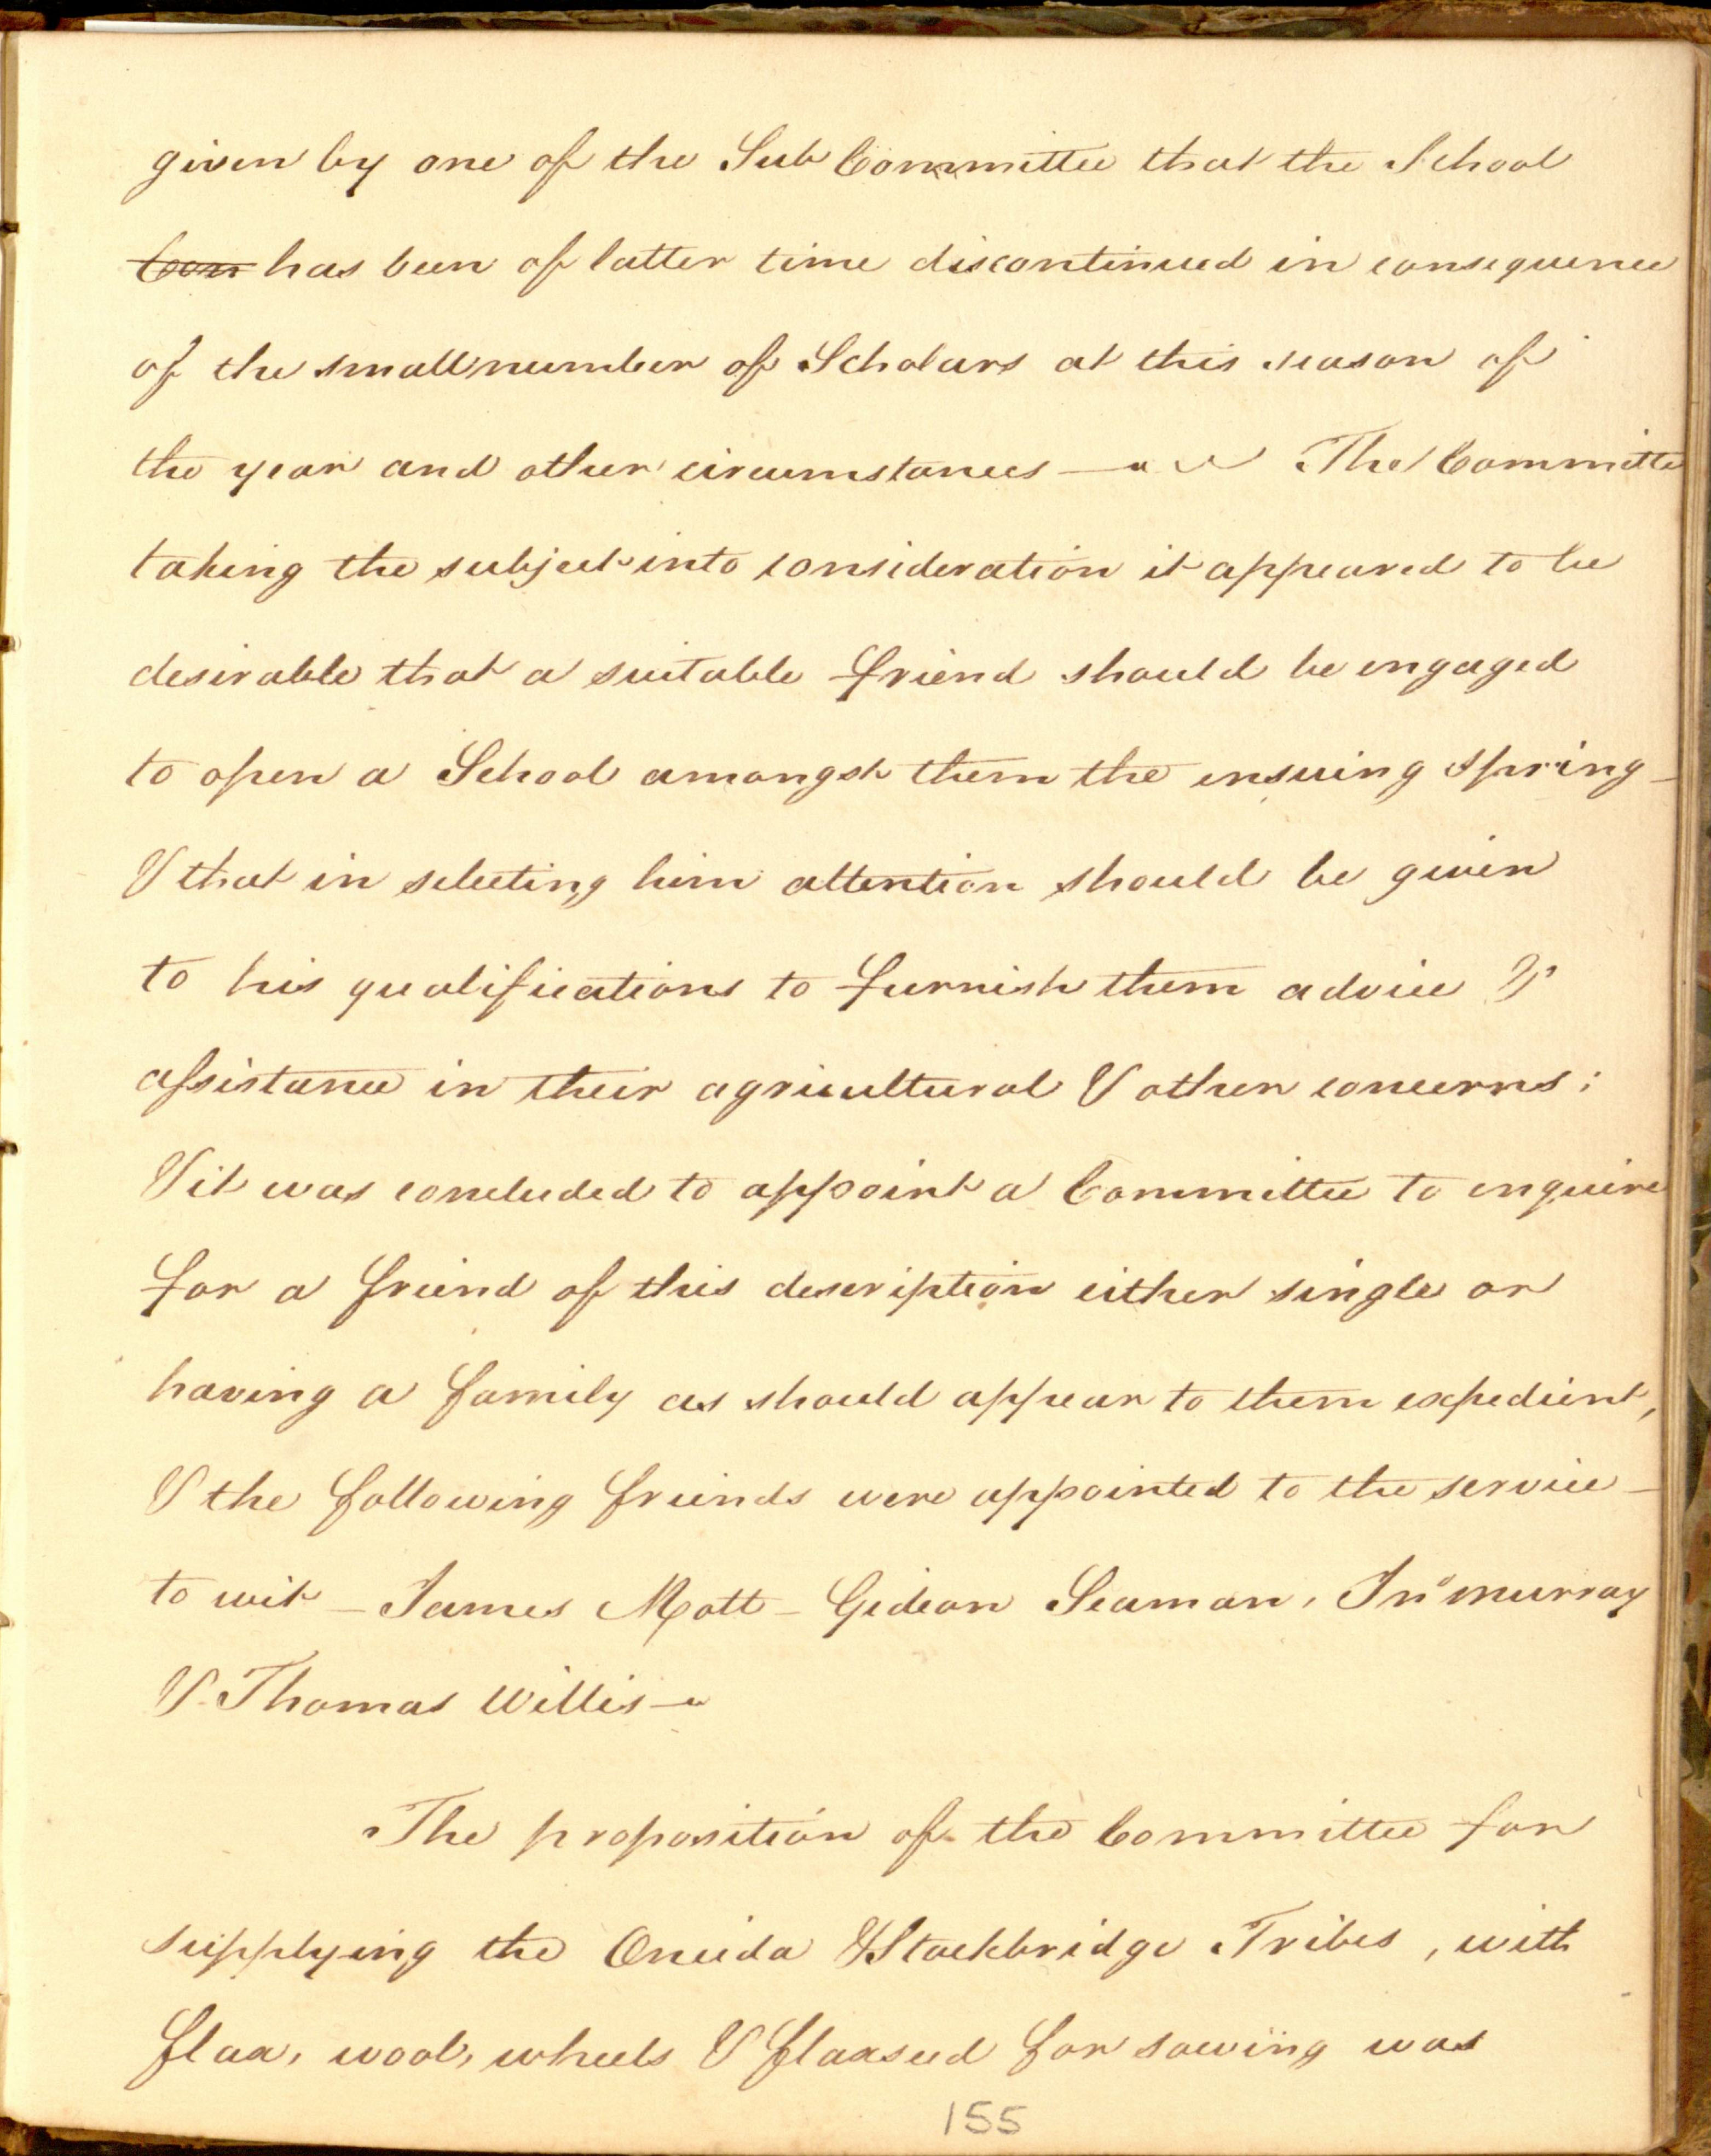 given by one of the Sub Committee that the School
Com has been of latter time discontinued in consequence
of the small number of Scholars at this season of
the year and other circumstances — The Committee
taking the subject into consideration it appeared to be
desirable that a suitable friend should be engaged
to open a School amongst them the ensuing Spring –
& that in selecting him attention should be given
to his qualifications to furnish them advice &
assistance in their agricultural & other concerns;
& it was concluded to appoint a Committee to enquire
for a friend of this description either single or
having a family as should appear to them expedient,
& the following friends were appointed to the service –
to wit – James Mott – Gideon Seaman, Jno Murray
& Thomas Willis –
The proposition of the Committee for
supplying the Oneida & Stockbridge Tribes, with
flax, wool, wheels & flaxseed for sowing was
155